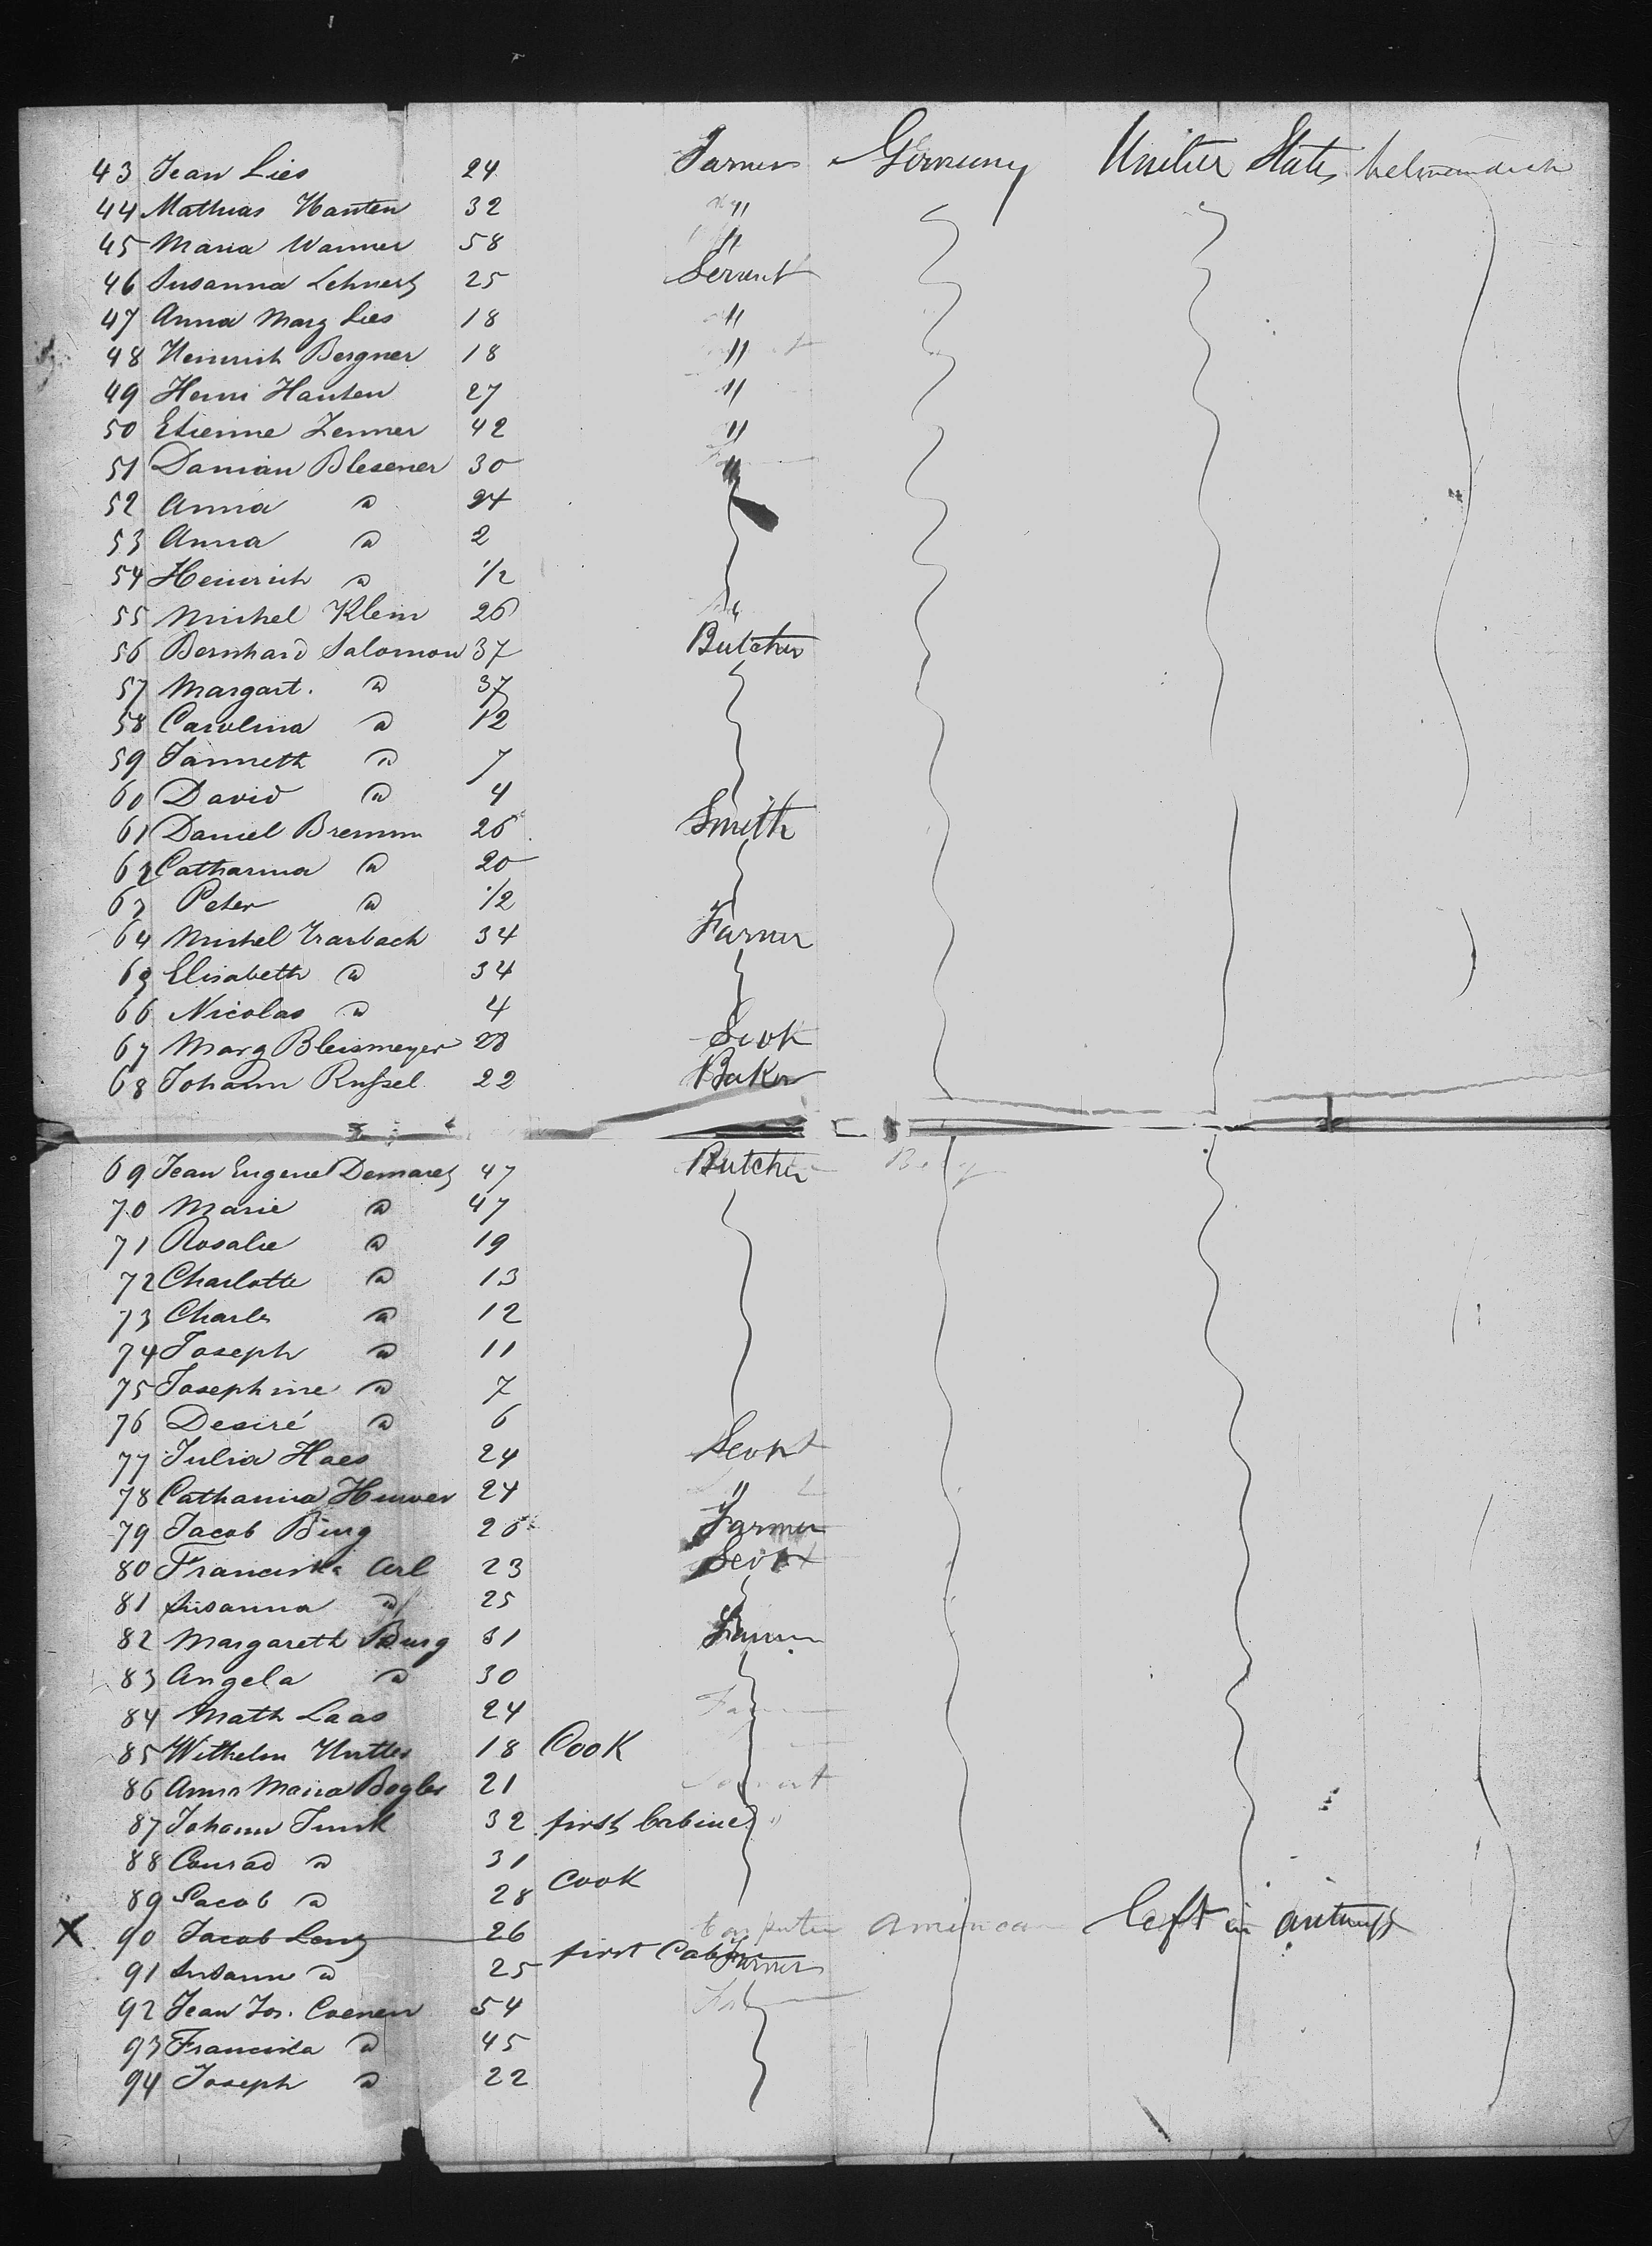 43 Jean Lies 24 Farmer Germany United States
44 Mathias Hanten 32 "
45 Maria Wanner 58 "
46 Susanna Lehnertz 25 Servent
47 Anna Marg Lies 18 "
48 Heinrich Bergner 18 "
49 Henri Hanten 27 "
50 Etienne Zenner 42 "
51 Damian Blesener 30 "
52 Anna " 24
53 Anna " 2
54 Heinrich " 1/2
55 Michel Klein 26
56 Bernhard Salomon 37 Butcher
57 Margart. " 37
58 Carolina " 12
59 Janneth " 7
60 David " 4
61 Daniel Bremm 26 Smith
62 Catharina " 20
63 Peter " 1/2
64 Michel Trarbach 34 Farmer
65 Elisabeth " 34
66 Nicolas " 4
67 Marg Bleismeyer 28
68 Johann Russel 22 Baker
69 Jean Eugene Demarez 47 Butcher
70 Marie " 47
71 Rosalie " 19
72 Charlotte " 13
73 Charles " 12
74 Joseph " 11
75 Josephine " 7
76 Desiré " 6
77 Julia Haes 24
78 Catharina 24 "
79 Jacob 26 Farmer
80 Franciska Arl 23
81 Susanna " 25
82 Margareth Burg 31
83 Angela " 30
84 Math Laas 24
85 Wilhelm 18 Cook
86 Anna Maria Bogler 21
87 Johann Funk 32 first Cabine
88 Conrad " 31
89 Jacob " 28 Cook
X 90 Jacob Lenz 26 American left in Antwerp
91 Susanne " 25 first Cabine Farmer
92 Jean Jos. Coenen 54
93 Franciska " 45
94 Joseph " 22